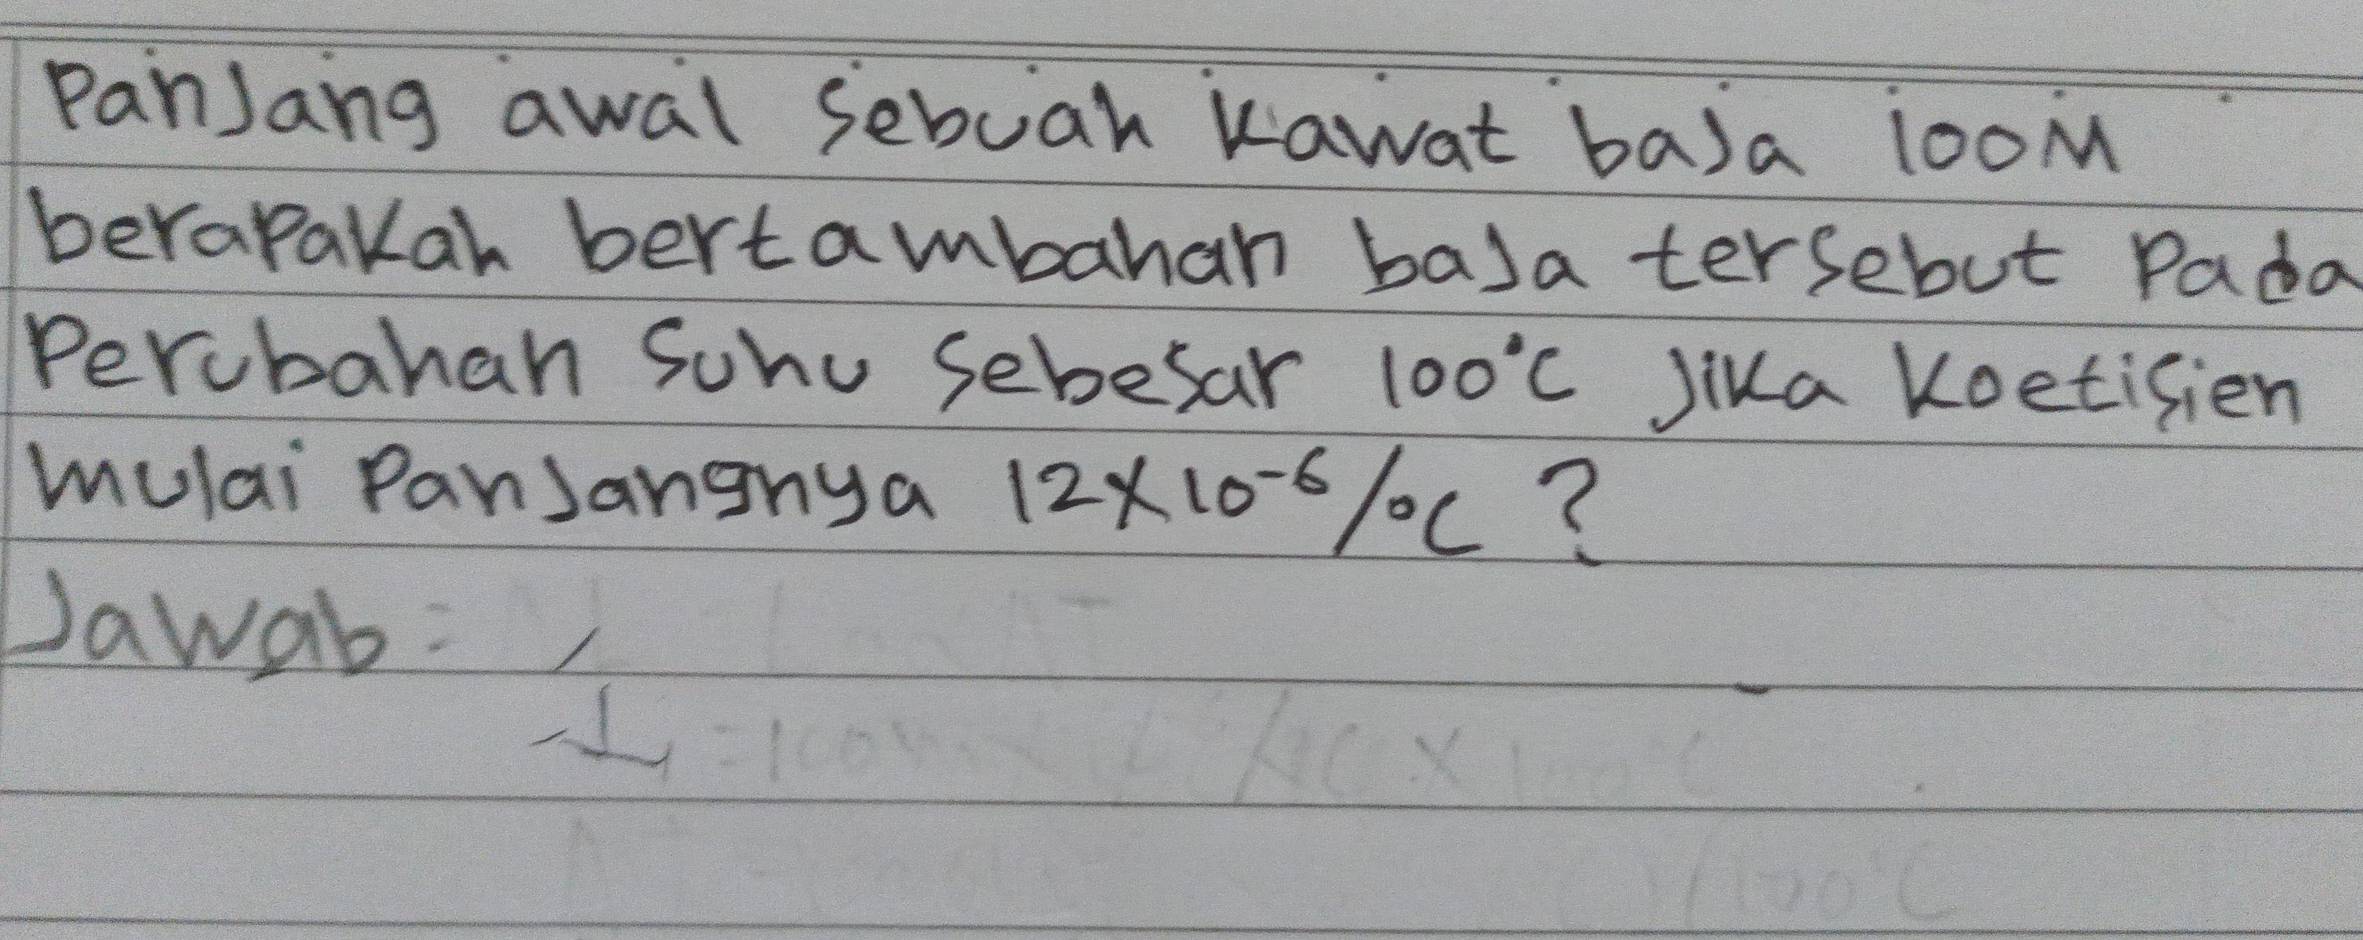 Panjang awal sebuah kawat baja 100M
berapakah bertambahan baja tersebut Pada
Perubahan Suhu Sebesar 100°C Jika Koetisien
mulai Panjangnya 12×10⁻⁶/°C ?
Jawab =